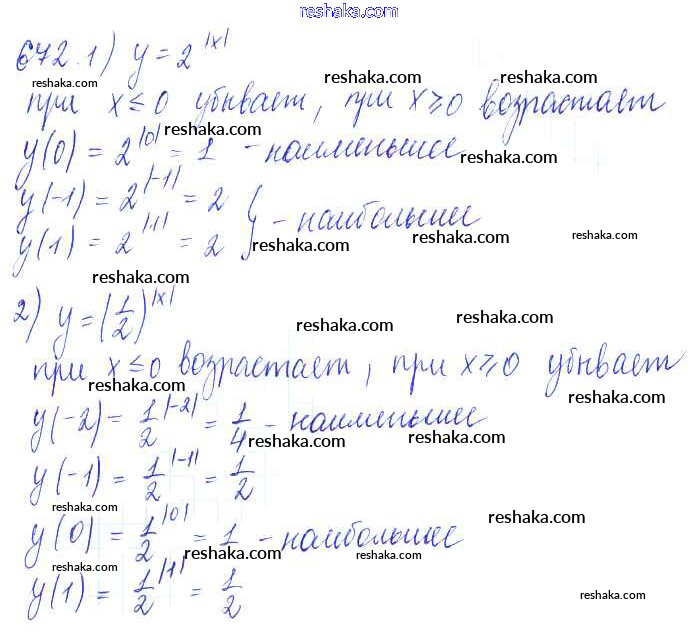 reshaka.com
672. 1) y = 2^|x|
reshaka.com reshaka.com
при x ≤ 0 убывает, при x ≥ 0 возрастает
reshaka.com reshaka.com
y(0) = 2^|0| = 1 - наименьшее
reshaka.com reshaka.com
y(-1) = 2^|-1| = 2
y(1) = 2^|1| = 2 } - наибольшее
reshaka.com reshaka.com reshaka.com
reshaka.com
2) y = (1/2)^|x|
reshaka.com reshaka.com
при x ≤ 0 возрастает, при x ≥ 0 убывает
reshaka.com reshaka.com
y(-2) = 1/2^|-2| = 1/4 - наименьшее
reshaka.com reshaka.com
y(-1) = 1/2^|-1| = 1/2
reshaka.com reshaka.com
y(0) = 1/2^|0| = 1 - наибольшее
reshaka.com reshaka.com reshaka.com
y(1) = 1/2^|1| = 1/2
reshaka.com